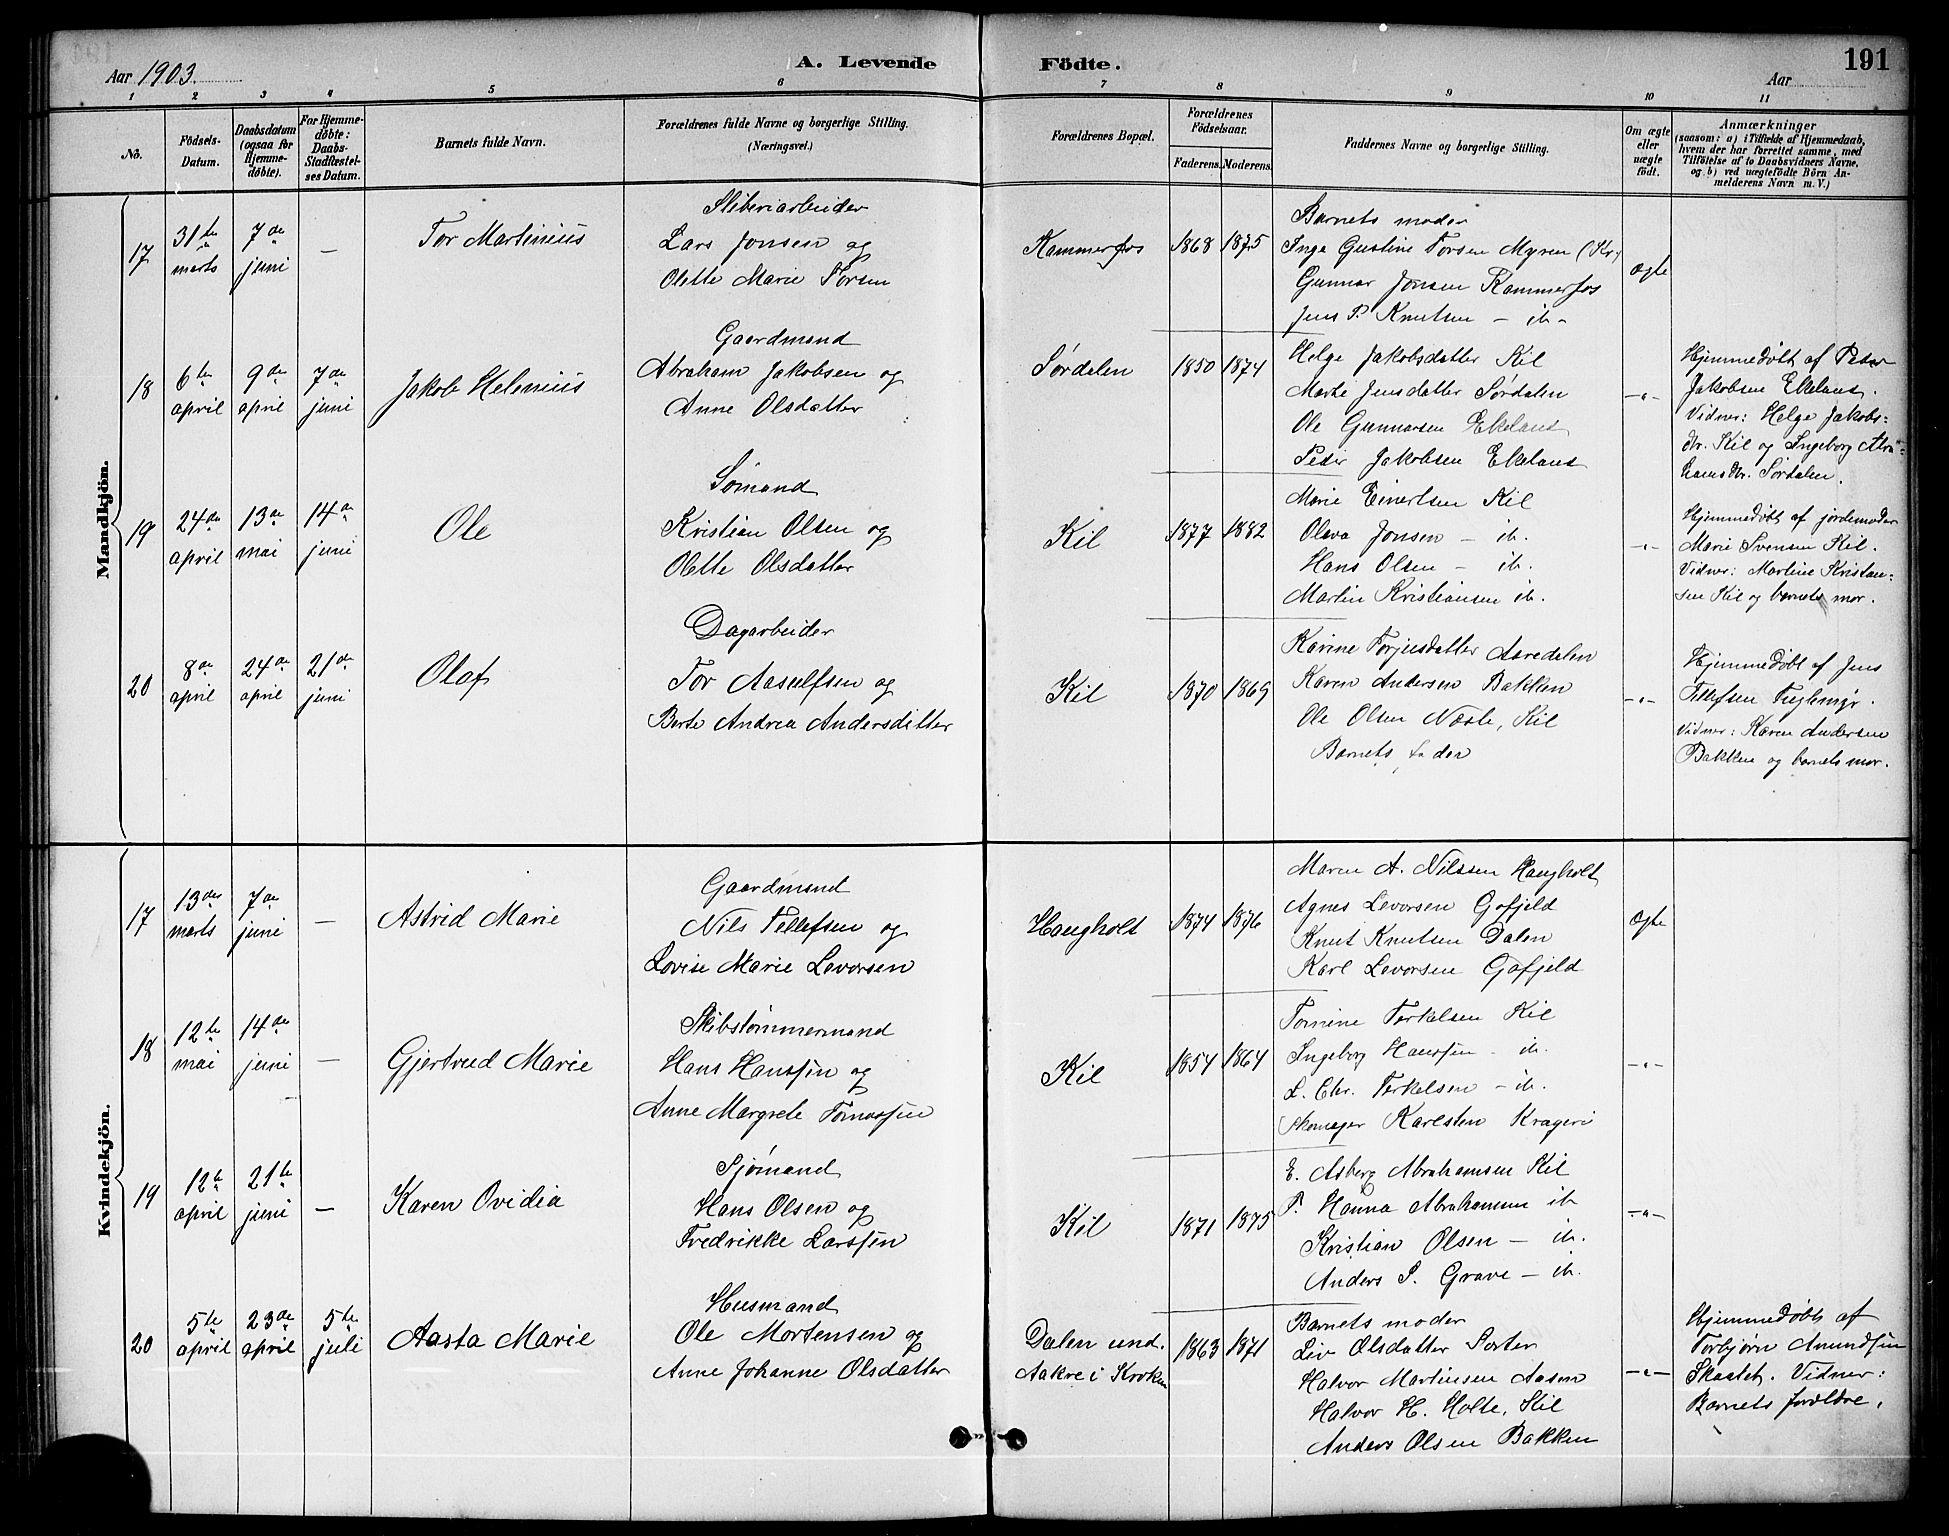 Aar 1903.
A. Levende
Födte.
191
Aar
1 2 3 4 5 6 7 8 9 10 11
No.
Födsels-Datum.
Daabsdatum (ogsaa for Hjemmedøbte).
For Hjemmedøbte: Daabs-Stadfæstelses Datum.
Barnets fulde Navn.
Forældrenes fulde Navne og borgerlige Stilling.
(Næringsvei.)
Forældrenes Bopæl.
Forældrenes Födselsaar.
Faderens. Moderens.
Faddernes Navne og borgerlige Stilling.
Om ægte eller uægte födt.
Anmærkninger
(saasom: a) i Tilfælde af Hjemmedaab, hvem der har forrettet samme, med Tilføielse af to Daabsvidners Navne, og b) ved uægtefødte Börn Anmelderens Navn m. V.)
Mandkjön.
17
31te marts
7de juni
—
Tor Martinius
Sliberiarbeider
Lars Jonsen og
Olette Marie Torsen
Kammerfos
1868 1875
Barnets moder
Inga Gustine Torsen Myren (Kr.)
Gunnar Jonsen Kammerfos
Jens P. Knutsen — ib —
Ægte
18
6te april
9de april
7de juni
Jakob Helenius
Gaardmand
Abraham Jakobsen og
Anne Olsdatter
Sørdalen
1850 1874
Helge Jakobsdatter Kil
Marte Jensdatter Sørdalen
Ole Gunnarsen Ekeland
Peder Jakobsen Ekeland
—"—
Hjemmedøbt af Peder
Jakobsen Ekeland.
Vidner: Helge Jakobs-
dr. Kil og Ingeborg Abra-
hamsdr. Sørdalen.
19
24de april
13de mai
14de juni
Ole
Sømand
Kristian Olsen og
Olette Olsdatter
Kil
1877 1882
Marie Einertsen Kil
Olava Jonsen — ib.
Hans Olsen — ib.
Martin Kristiansen ib.
—"—
Hjemmedøbt af jordemoder
Marie Svensen Kil.
Vidner: Martine Kristian-
sen Kil og barnets mor.
20
8de april
24de april
21de juni
Olaf
Dagarbeider
Tor Aasulfsen og
Berte Andrea Andersdatter
Kil
1870 1869
Karine Torjusdatter Aaredalen
Karen Andersen Bakken
Ole Olsen Næste, Kil
Barnets fader
—"—
Hjemmedøbt af Jens
Tellefsen Teglemyr.
Vidner: Karen Andersen
Bakken og barnets mor.
Kvindekjön.
17
13de marts
7de juni
—
Astrid Marie
Gaardmand
Nils Tellefsen og
Lovise Marie Levorsen
Haugholt
1874 1876
Maren A. Nilssen Haugholt
Agnes Levorsen Gofjeld
Knut Knutsen Dalen
Karl Levorsen Gofjeld
Ægte
18
12te mai
14de juni
—
Gjertrud Marie
Skibstømmermand
Hans Hanssen og
Anne Margrete Tomassen
Kil
1854 1864
Tomine Terkelsen Kil
Ingeborg Hanssen — ib.
L. Chr. Terkelsen — ib.
Skomager Karlsten Kragerø
—"—
19
12te april
21de juni
—
Karen Ovidia
Sjømand
Hans Olsen og
Fredrikke Larssen
Kil
1871 1875
E. Asberg Abrahamsen Kil
P. Hanna Abrahamsen ib
Kristian Olsen — ib.
Anders S. Grave — ib.
—"—
20
5te april
23de april
5te juli
Aasta Marie
Husmand
Ole Mortensen og
Anne Johanne Olsdatter
Dalen und.
Aakre i Kroken
1863 1871
Barnets moder
Liv Olsdatter Sorter
Halvor Martinsen Aasen
Halvor H. Holte, Kil
Anders Olsen Bakken
—"—
Hjemmedøbt af
Torbjørn Amundsen
Skaatet. Vidner:
Barnets forældre.